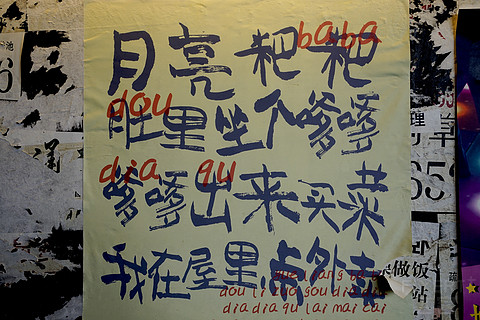 baba
月亮粑粑
dou
肚里坐个嗲嗲
dia qu
嗲嗲出来买菜
我在屋里点外卖
dou li zuo gou dia dia
dia dia qu lai mai cai
做饭
站